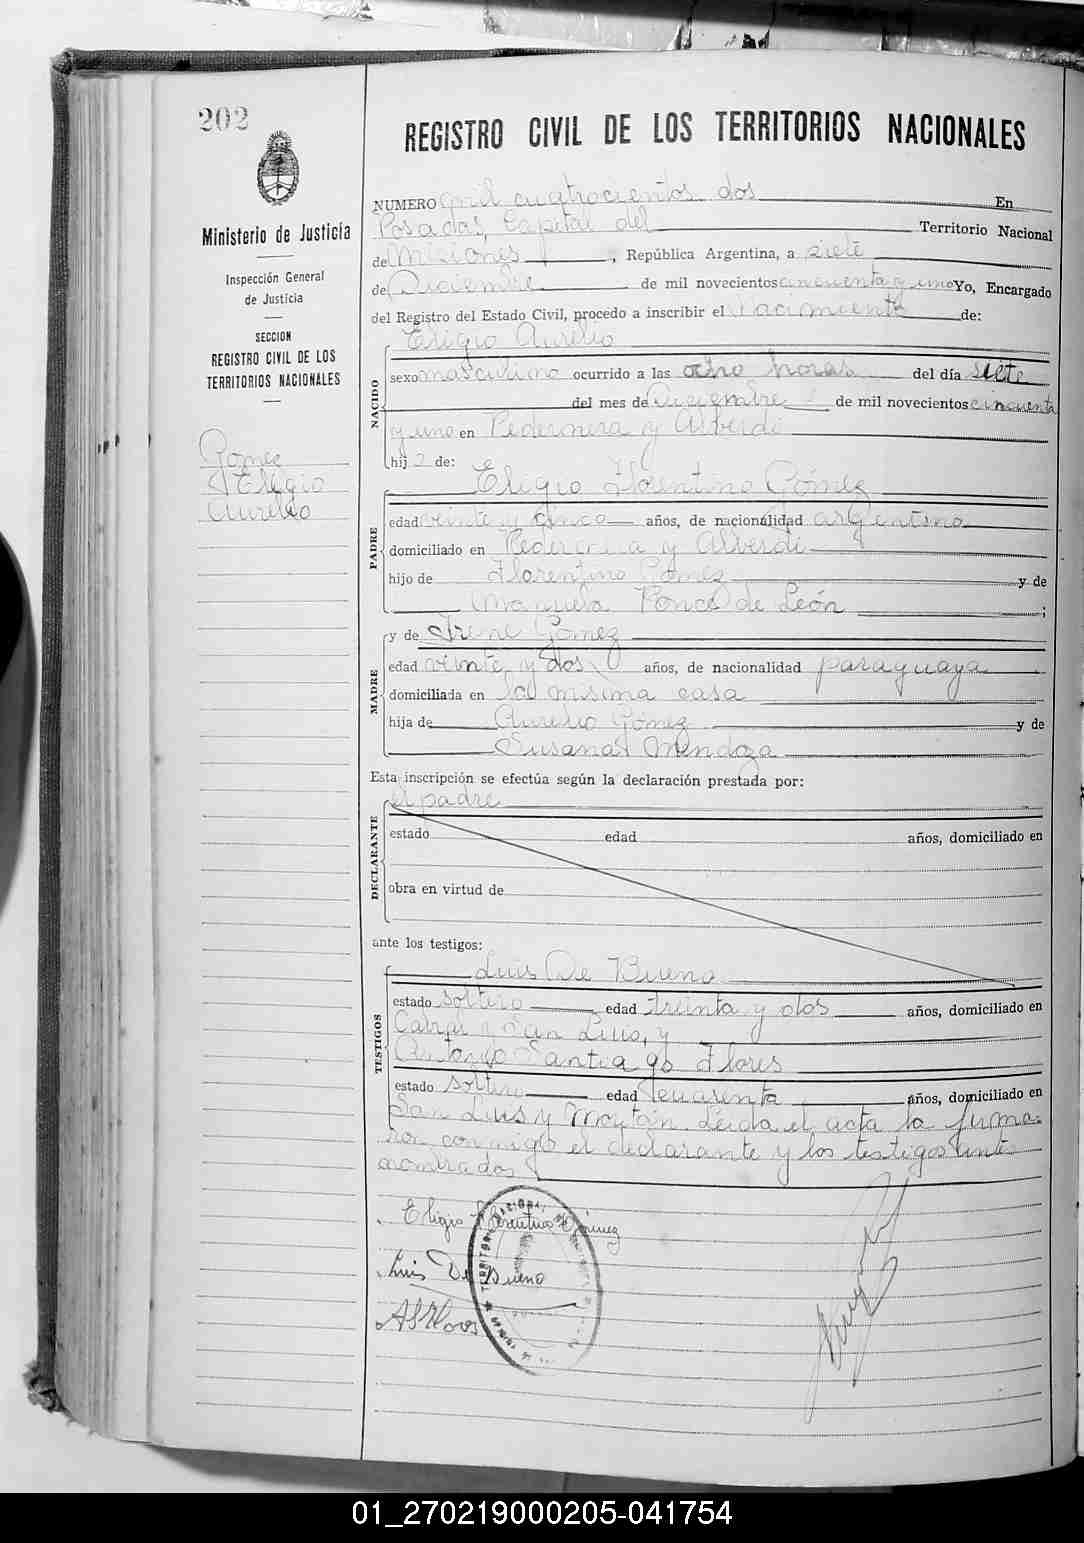 202
REGISTRO CIVIL DE LOS TERRITORIOS NACIONALES
Ministerio de Justicia
Inspección General
de Justicia
SECCION
REGISTRO CIVIL DE LOS
TERRITORIOS NACIONALES
Gomez
Eligio
Aurelio
NUMERO mil cuatrocientos dos En
Posadas, Capital del Territorio Nacional
de Misiones, República Argentina, a siete
de Diciembre de mil novecientos cincuenta y uno Yo, Encargado
del Registro del Estado Civil, procedo a inscribir el nacimiento de:
NACIDO
Eligio Aurelio
sexo masculino ocurrido a las ocho horas del día siete
del mes de Diciembre de mil novecientos cincuenta
y uno en Pedernera y Alberdi
hijo de:
PADRE
Eligio Florentino Gómez
edad veinte y cinco años, de nacionalidad argentino
domiciliado en Pedernera y Alberdi
hijo de Florentino Gómez y de
Manuela Ponce de León ;
MADRE
y de Irene Gomez
edad veinte y dos años, de nacionalidad paraguaya
domiciliada en la misma casa
hija de Aurelio Gómez y de
Susana Mendoza
Esta inscripción se efectúa según la declaración prestada por:
DECLARANTE
el padre
estado edad años, domiciliado en
obra en virtud de
ante los testigos:
TESTIGOS
Luis De Bueno
estado soltero edad treinta y dos años, domiciliado en
Cabral y San Luis, y
Antonio Santiago Flores
estado soltero edad cuarenta años, domiciliado en
San Luis y Leida el acta la firma-
ron conmigo el declarante y los testigos ante
nombrados
Eligio Florentino Gómez
Luis De Bueno
ASFlores
TERRITORIO NACIONAL
01_270219000205-041754